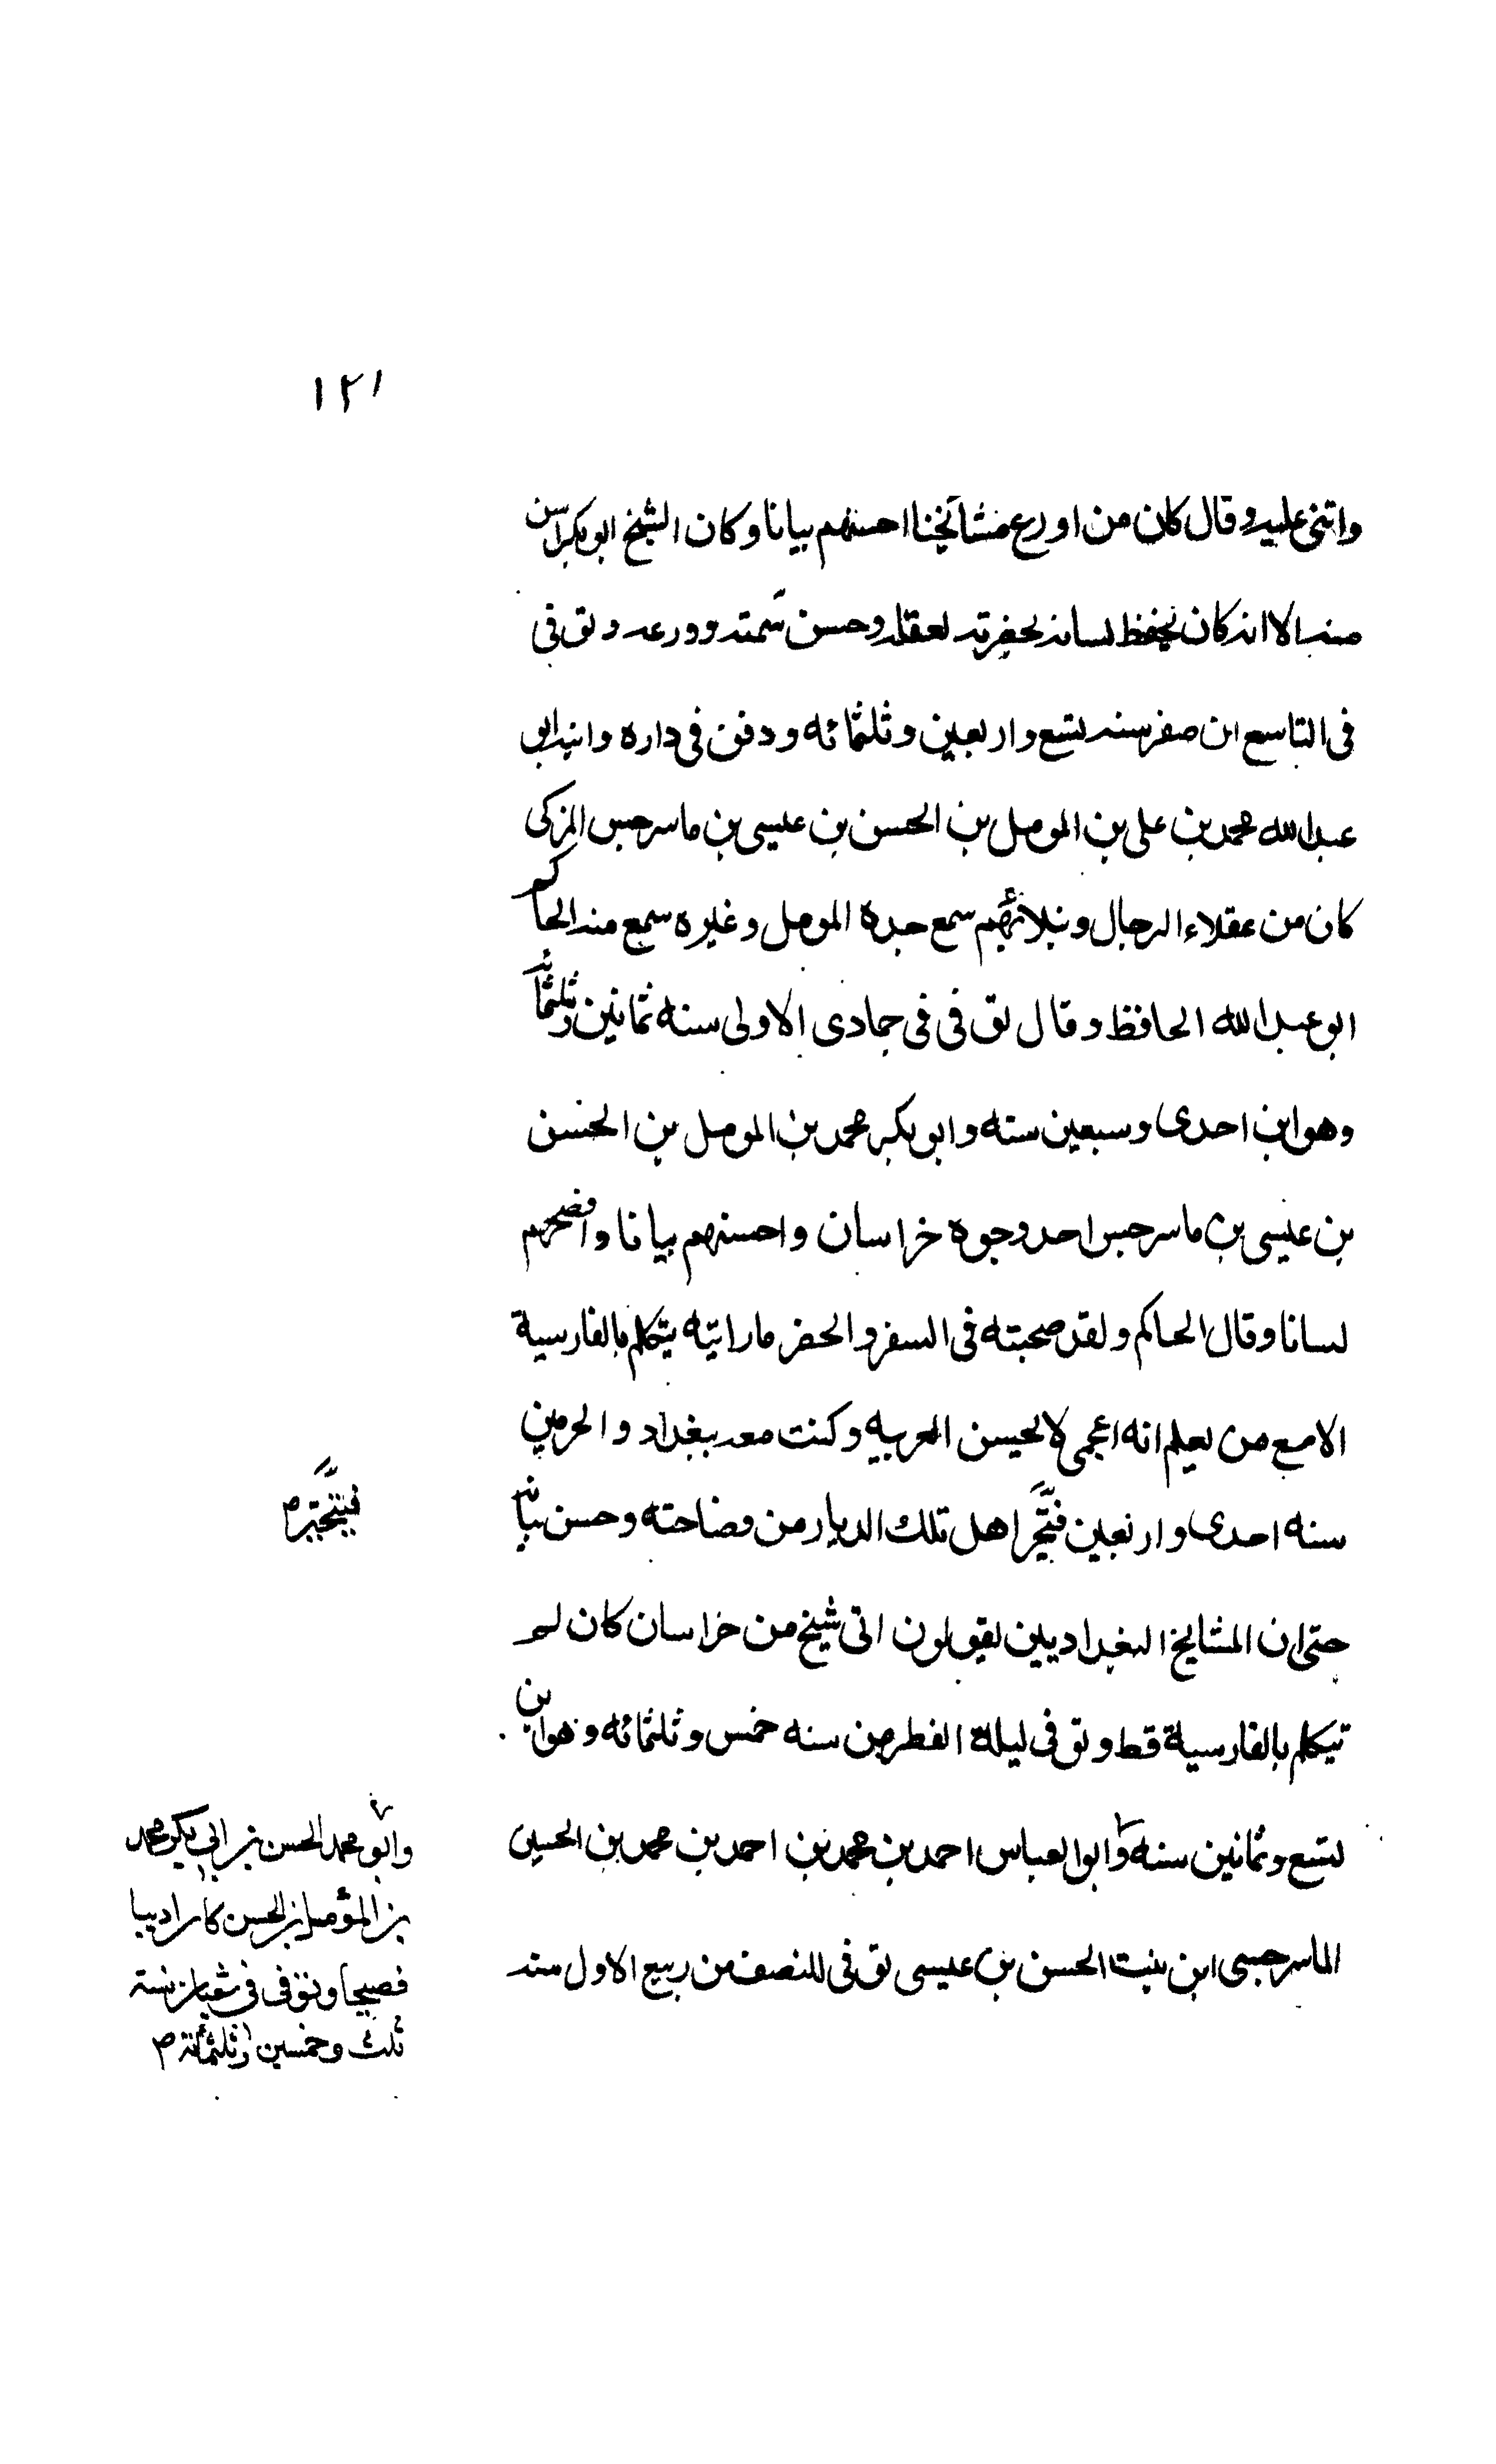 ١٢١
واثنى عليه وقال كان من اورع مشائخنا احسنهم بيانا وكان الشيخ ابو بكر اسن
منه الا انه كان يحفظ لسانه بحضرته لعقله وحسن سمته وورعه وتوفى
فى التاسع ان صفر سنه تسع واربعين وثلثمائه ودفن فى داره وابنه ابو
عبد الله محمد بن على بن المومل بن الحسن بن عيسى بن ماسرجس المزكى
كان من عقلاء الرجال ونبلائهم سمع جده المومل وغيره سمع منه الحاكم
ابو عبد الله الحافظ وقال توفى فى جمادى الاولى سنه ثمانين وثلثمائه
وهو ابن احدى وسبعين سنه وابو بكر محمد بن المومل بن الحسن
بن عيسى بن ماسرجس احد وجوه خراسان واحسنهم بيانا وافصحهم
لسانا وقال الحاكم ولقد صحبته فى السفر والحضر ما رايته يتكلم بالفارسية
الا مع من يعلم انه اعجمى لا يحسن العربيه وكنت معه ببغداد والحرمين
سنه احدى واربعين فتحير اهل تلك الديار من فصاحته وحسن بيانه
فيتحير م
حتى ان المشايخ البغداديين يقولون اتى شيخ من خراسان كان لم
يتكلم بالفارسية قط وتوفى ليلة الفطر من سنه خمس وثلثمائه وهو ابن
تسع وثمانين سنه وابو العباس احمد بن محمد بن احمد بن محمد بن الحسين
الماسرجسى ابن بنت الحسن بن عيسى توفى للنصف من ربيع الاول سنه
وابو محمد الحسن بن ابى بكر محمد
بن المؤمل بن الحسن كان اديبا
فصيحا وتوفى فى شعبان سنة
ثلث وخمسين وثلثمائة م